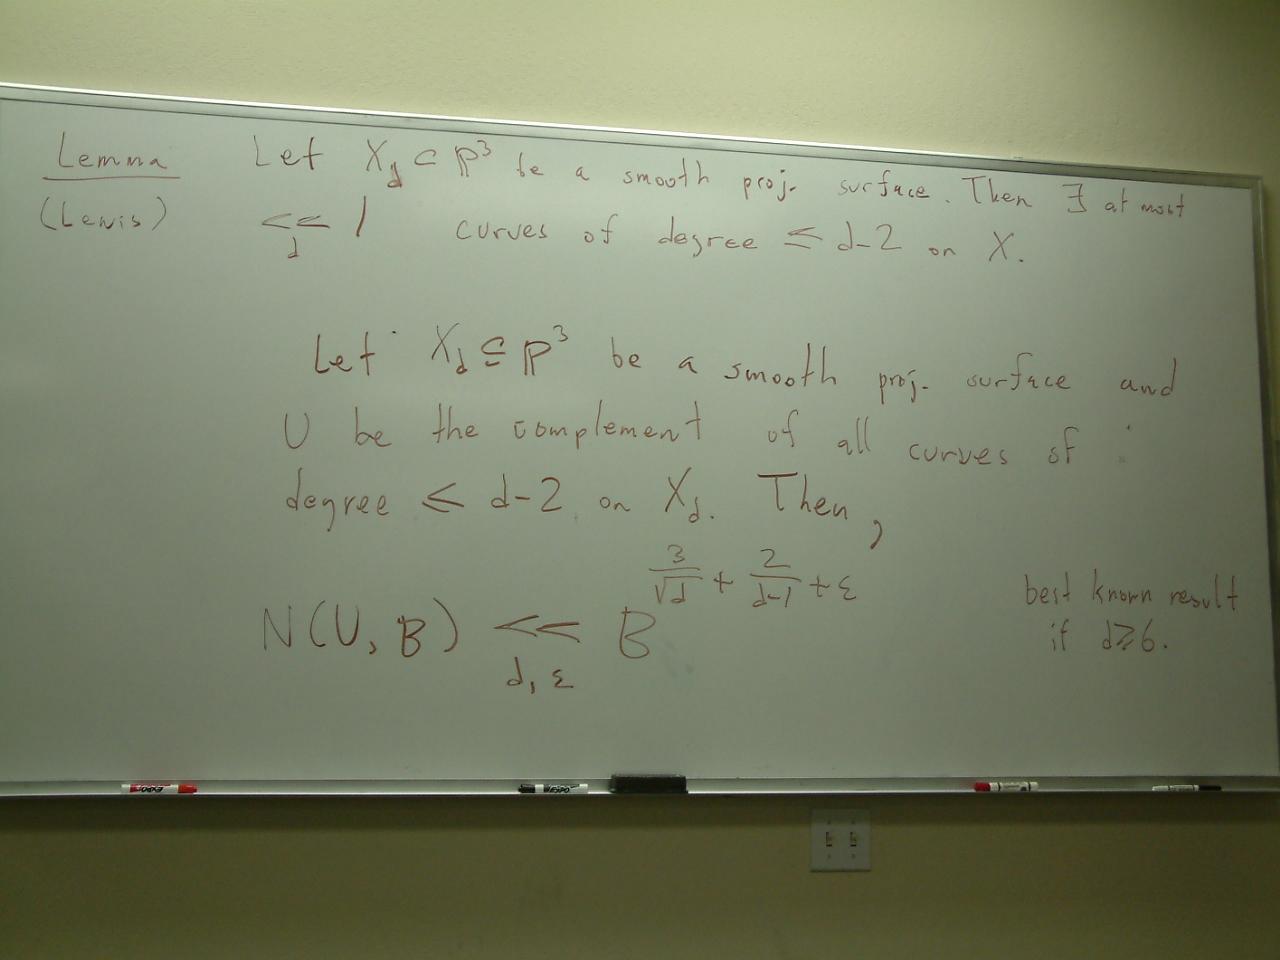 Lemma Let X_d ⊂ P^3 be a smooth proj. surface. Then ∃ at most
(Lewis) <<_d 1 curves of degree ≤ d-2 on X.
Let X_d ⊆ P^3 be a smooth proj. surface and
U be the complement of all curves of
degree ≤ d-2 on X_d. Then,
N(U, B) <<_{d, ε} B^{3/√d + 2/(d-1) + ε}
best known result
if d≥6.
EXPO
EXPO